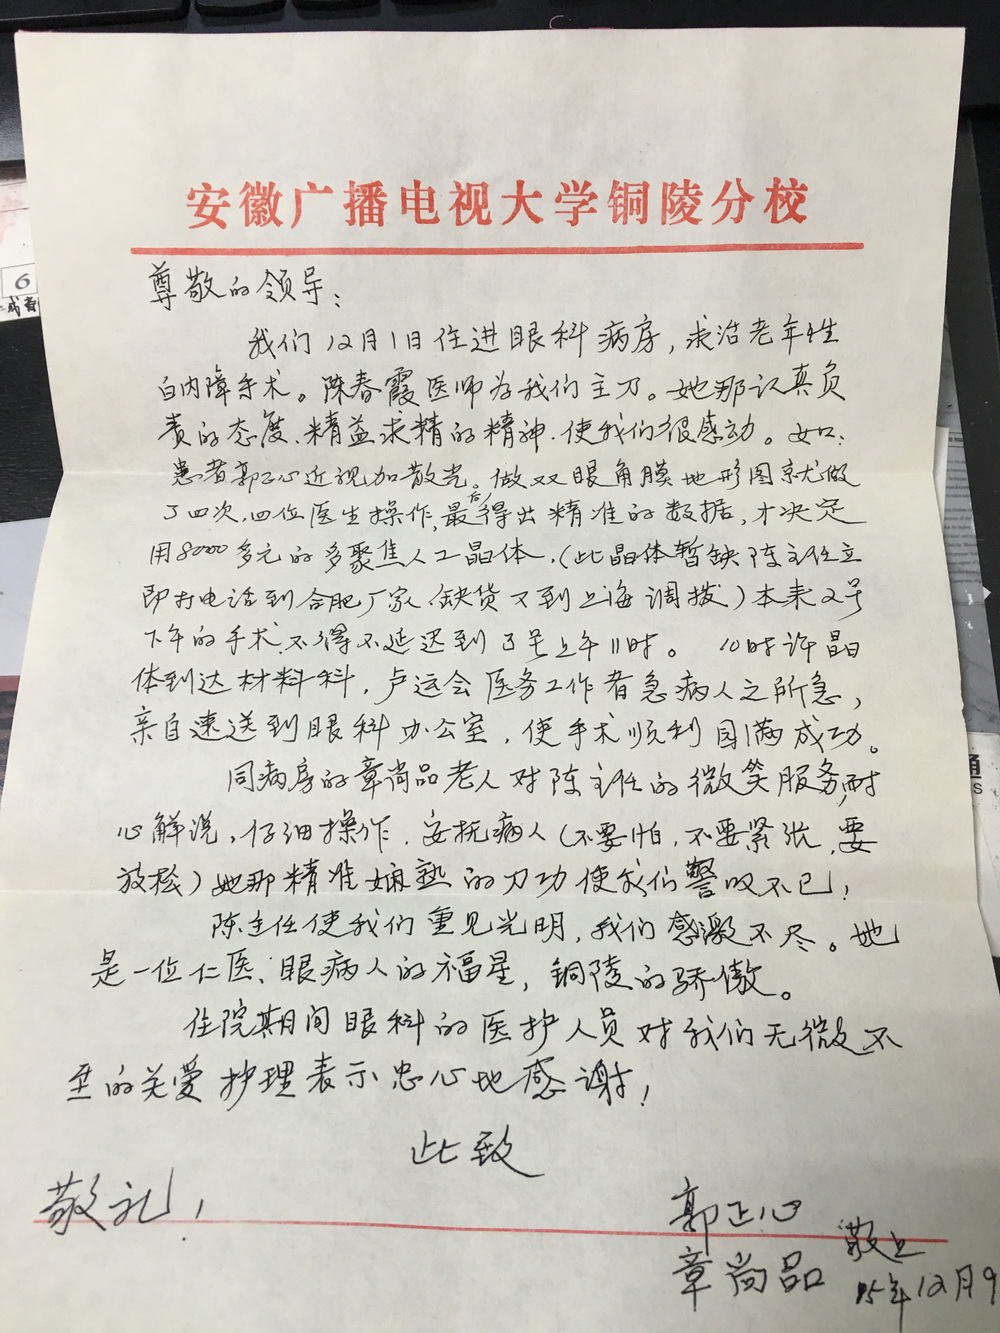 安徽广播电视大学铜陵分校
尊敬的领导：
我们12月1日住进眼科病房，求治老年性
白内障手术。陈春霞医师为我们主刀。她那认真负
责的态度、精益求精的精神，使我们很感动。如：
患者郭正心近视加散光。做双眼角膜地形图就做
了四次，四位医生操作，最后得出精准的数据，才决定
用8000多元的多聚焦人工晶体，（此晶体暂缺陈主任立
即打电话到合肥厂家（缺货又到上海调拨）本来2号
下午的手术不得不延迟到3号上午11时。 10时许晶
体到达材料科，卢运会医务工作者急病人之所急，
亲自速送到眼科办公室，使手术顺利圆满成功。
同病房的章尚品老人对陈主任的微笑服务，耐
心解说，仔细操作，安抚病人（不要怕，不要紧张，要
放松）她那精准娴熟的刀功使我们警叹不已！
陈主任使我们重见光明，我们感激不尽。她
是一位仁医、眼病人的福星，铜陵的骄傲。
住院期间眼科的医护人员对我们无微不
至的关爱护理表示忠心地感谢！
此致
敬礼！
郭正心
章尚品 敬上
15年12月9
6